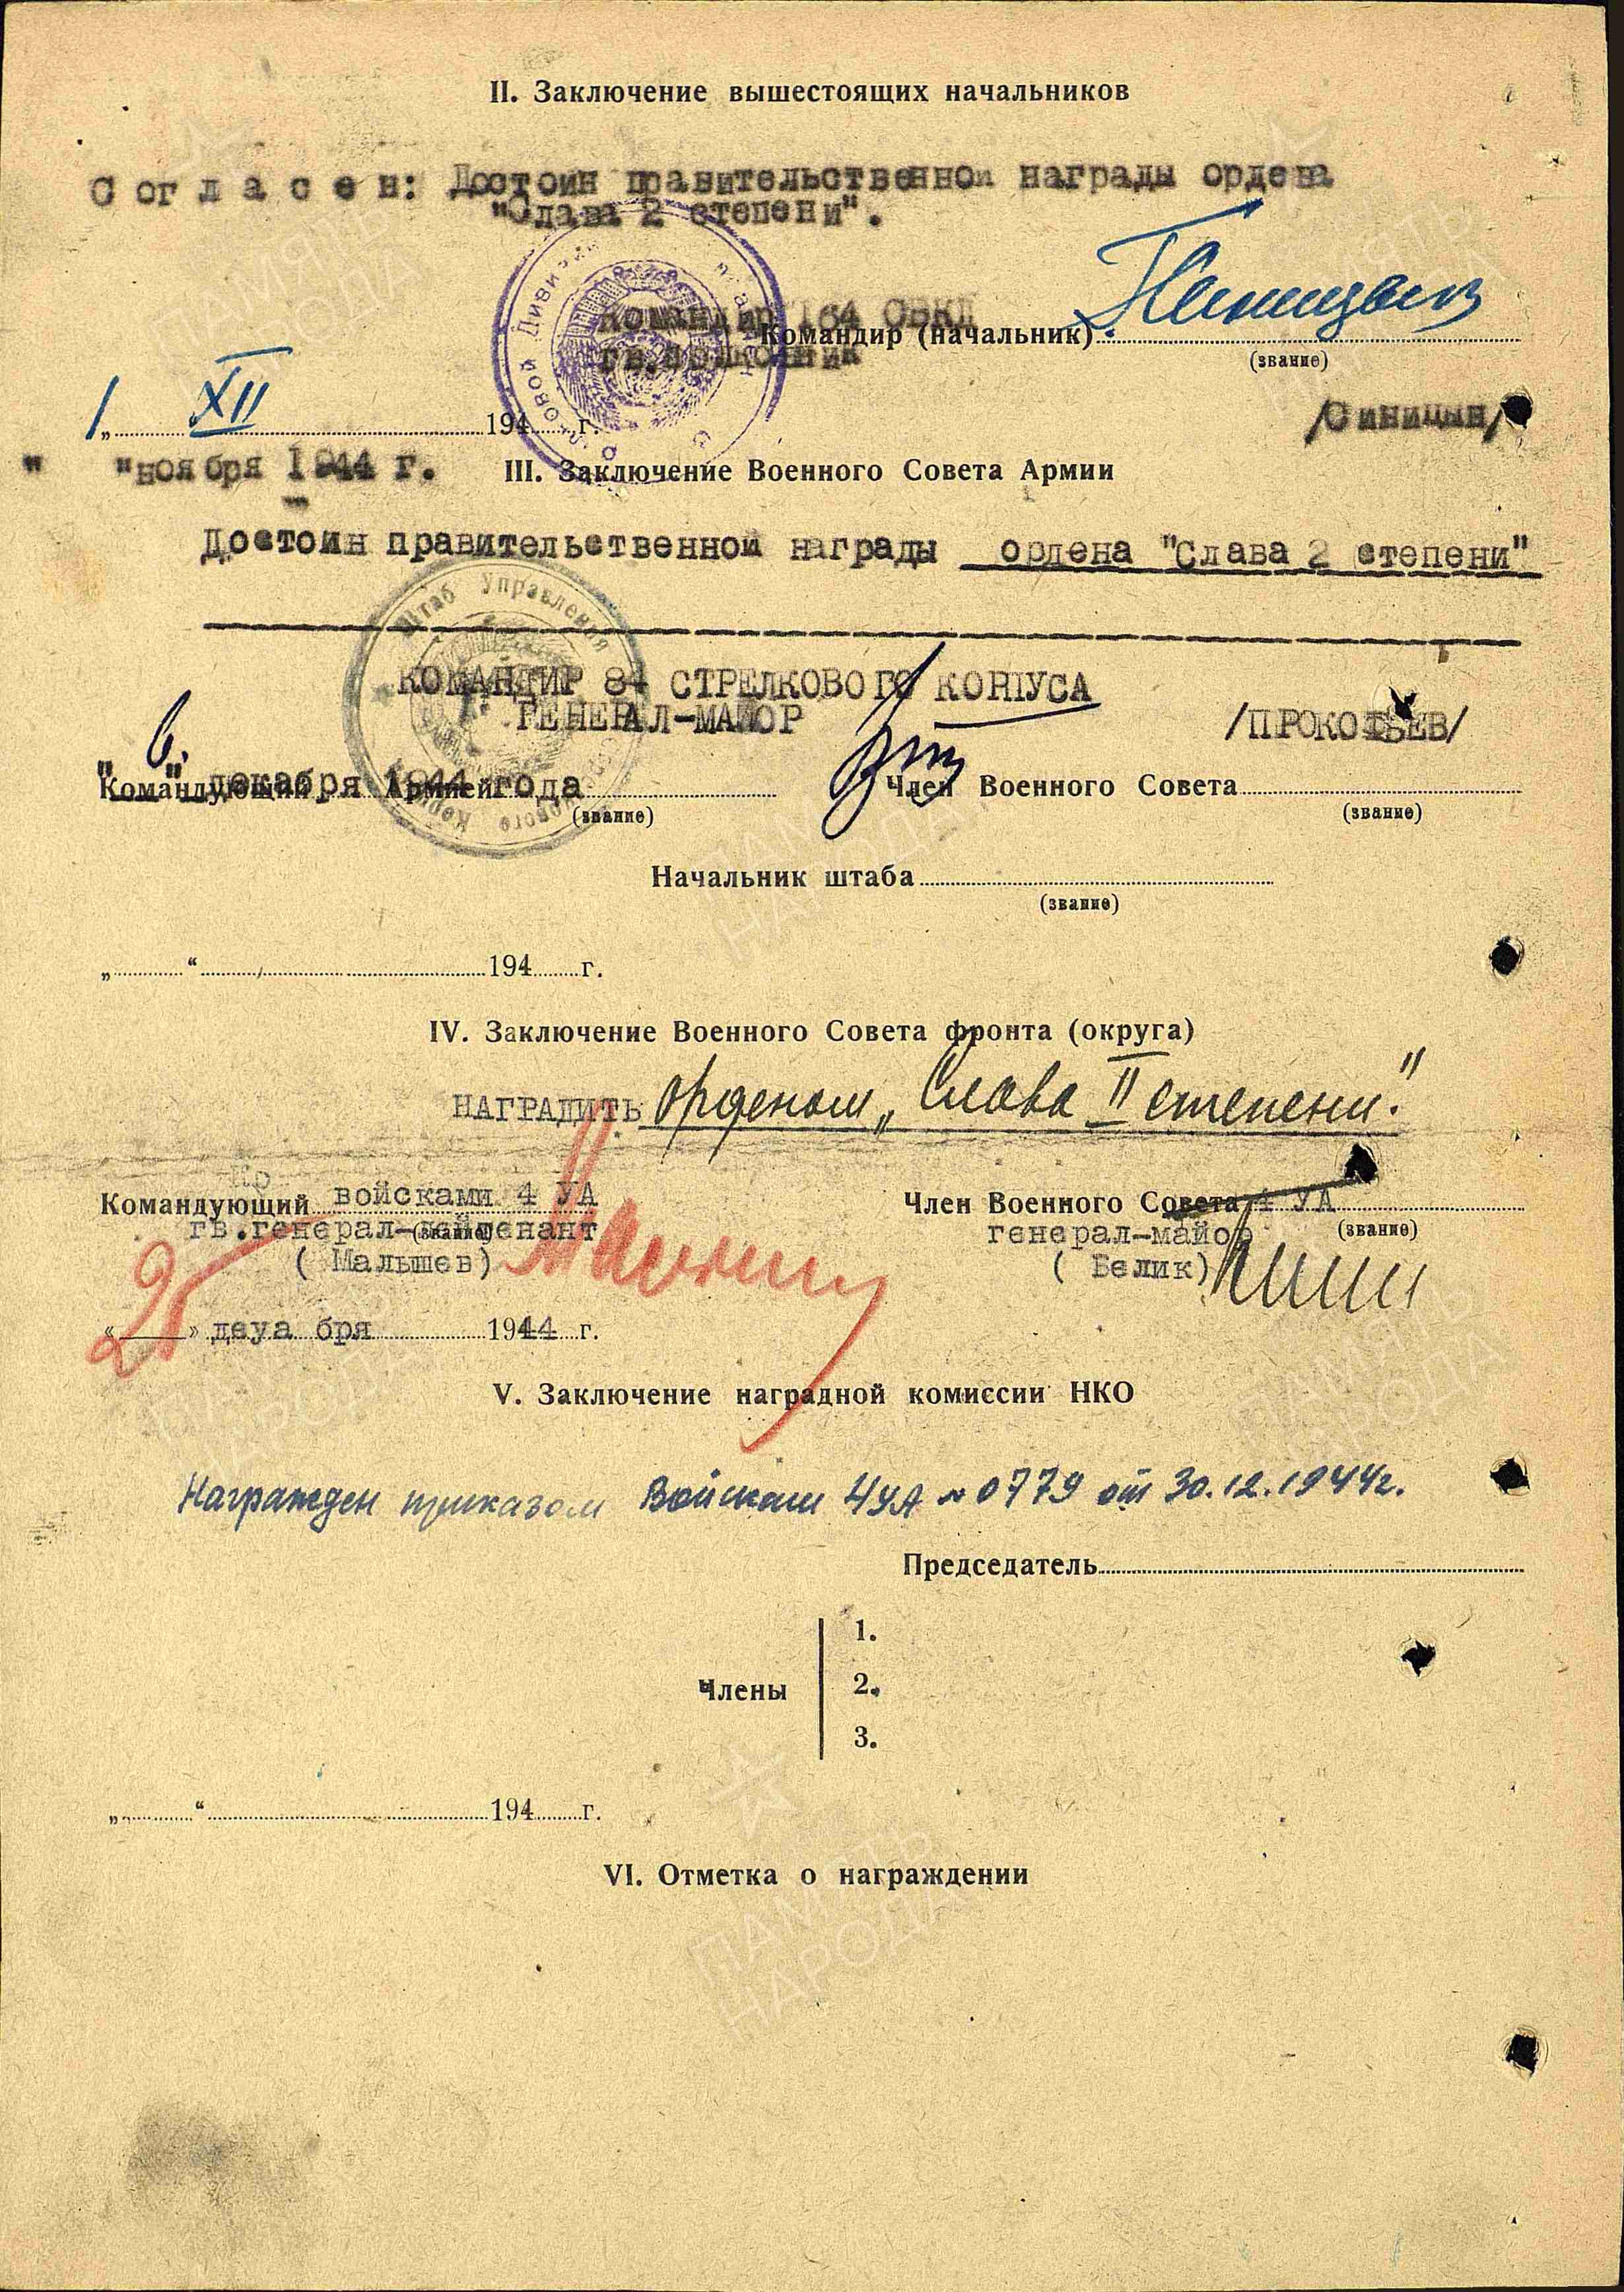 II. Заключение вышестоящих начальников
С о г л а с е н: Достоин правительственной награды ордена
"Слава 2 степени".
Командир 164 СВКД
гв.полковник
Командир (начальник)
(звание)
1 XII 194 г.
/Синицын/
" "ноября 1944 г.
III. Заключение Военного Совета Армии
Достоин правительственной награды ордена "Слава 2 степени"
Штаб Управления
КОМАНДИР 84 СТРЕЛКОВОГО КОРПУСА
ГЕНЕРАЛ-МАЙОР /ПРОКОФЬЕВ/
6.
" " декабря 1944 года
Командующий Армией Член Военного Совета
(звание) (звание)
Начальник штаба
(звание)
„ “ 194 г.
IV. Заключение Военного Совета фронта (округа)
НАГРАДИТЬ орденом „Слава II степени."
Командующий войсками 4 УА Член Военного Совета 4 УА
гв.генерал-лейтенант (звание) генерал-майор (звание)
( Малышев) ( Белик)
25
« » деуа бря 1944 г.
V. Заключение наградной комиссии НКО
Награжден приказом Войскам 4УА № 0779 от 30.12.1944г.
Председатель
Члены
1.
2.
3.
„ “ 194 г.
VI. Отметка о награждении
ПАМЯТЬ
НАРОДА